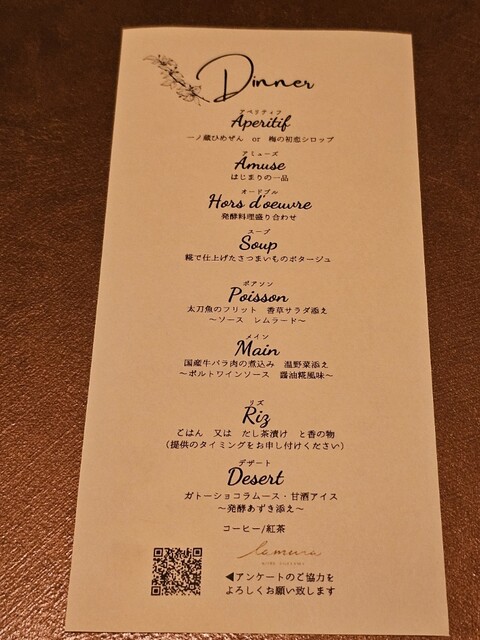 Dinner
アペリティフ
Aperitif
一ノ蔵ひめぜん or 梅の初恋シロップ
アミューズ
Amuse
はじまりの一品
オードブル
Hors d'oeuvre
発酵料理盛り合わせ
スープ
Soup
糀で仕上げたさつまいものポタージュ
ポアソン
Poisson
太刀魚のフリット 香草サラダ添え
～ソース レムラード～
メイン
Main
国産牛バラ肉の煮込み 温野菜添え
～ポルトワインソース 醤油糀風味～
リズ
Riz
ごはん 又は だし茶漬け と香の物
(提供のタイミングをお申し付けください)
デザート
Desert
ガトーショコラムース・甘酒アイス
～発酵あずき添え～
コーヒー/紅茶
lamura
◀アンケートのご協力を
よろしくお願い致します